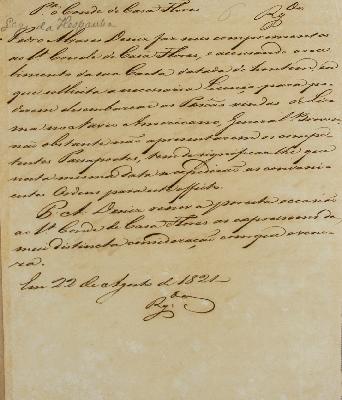 Pª o Conde de Casa Flores
Rg.da
Leg.da Hespanha
Pedro Alvares Diniz faz seus comprimentos
ao Sr. Conde de Casa Flores, e accusando o rece-
bimento da sua Carta datada de hontem, em
que solicita a necessaria Licença para po-
derem desembarcar os vindas de Li-
ma no Navio Americano, General Brown,
não obstante não apresentarem os compe-
tentes Passaportes, tem de significar lhe que
nesta mesma data se expedirão as convenien-
tes Ordens para este effeito.
P. A. Diniz renova por esta occasião
ao Sr. Conde de Casa Flores as expressoens da
mui distincta consideração com que o vene-
ra.
Em 22 de Agosto de 1821
Rg.da